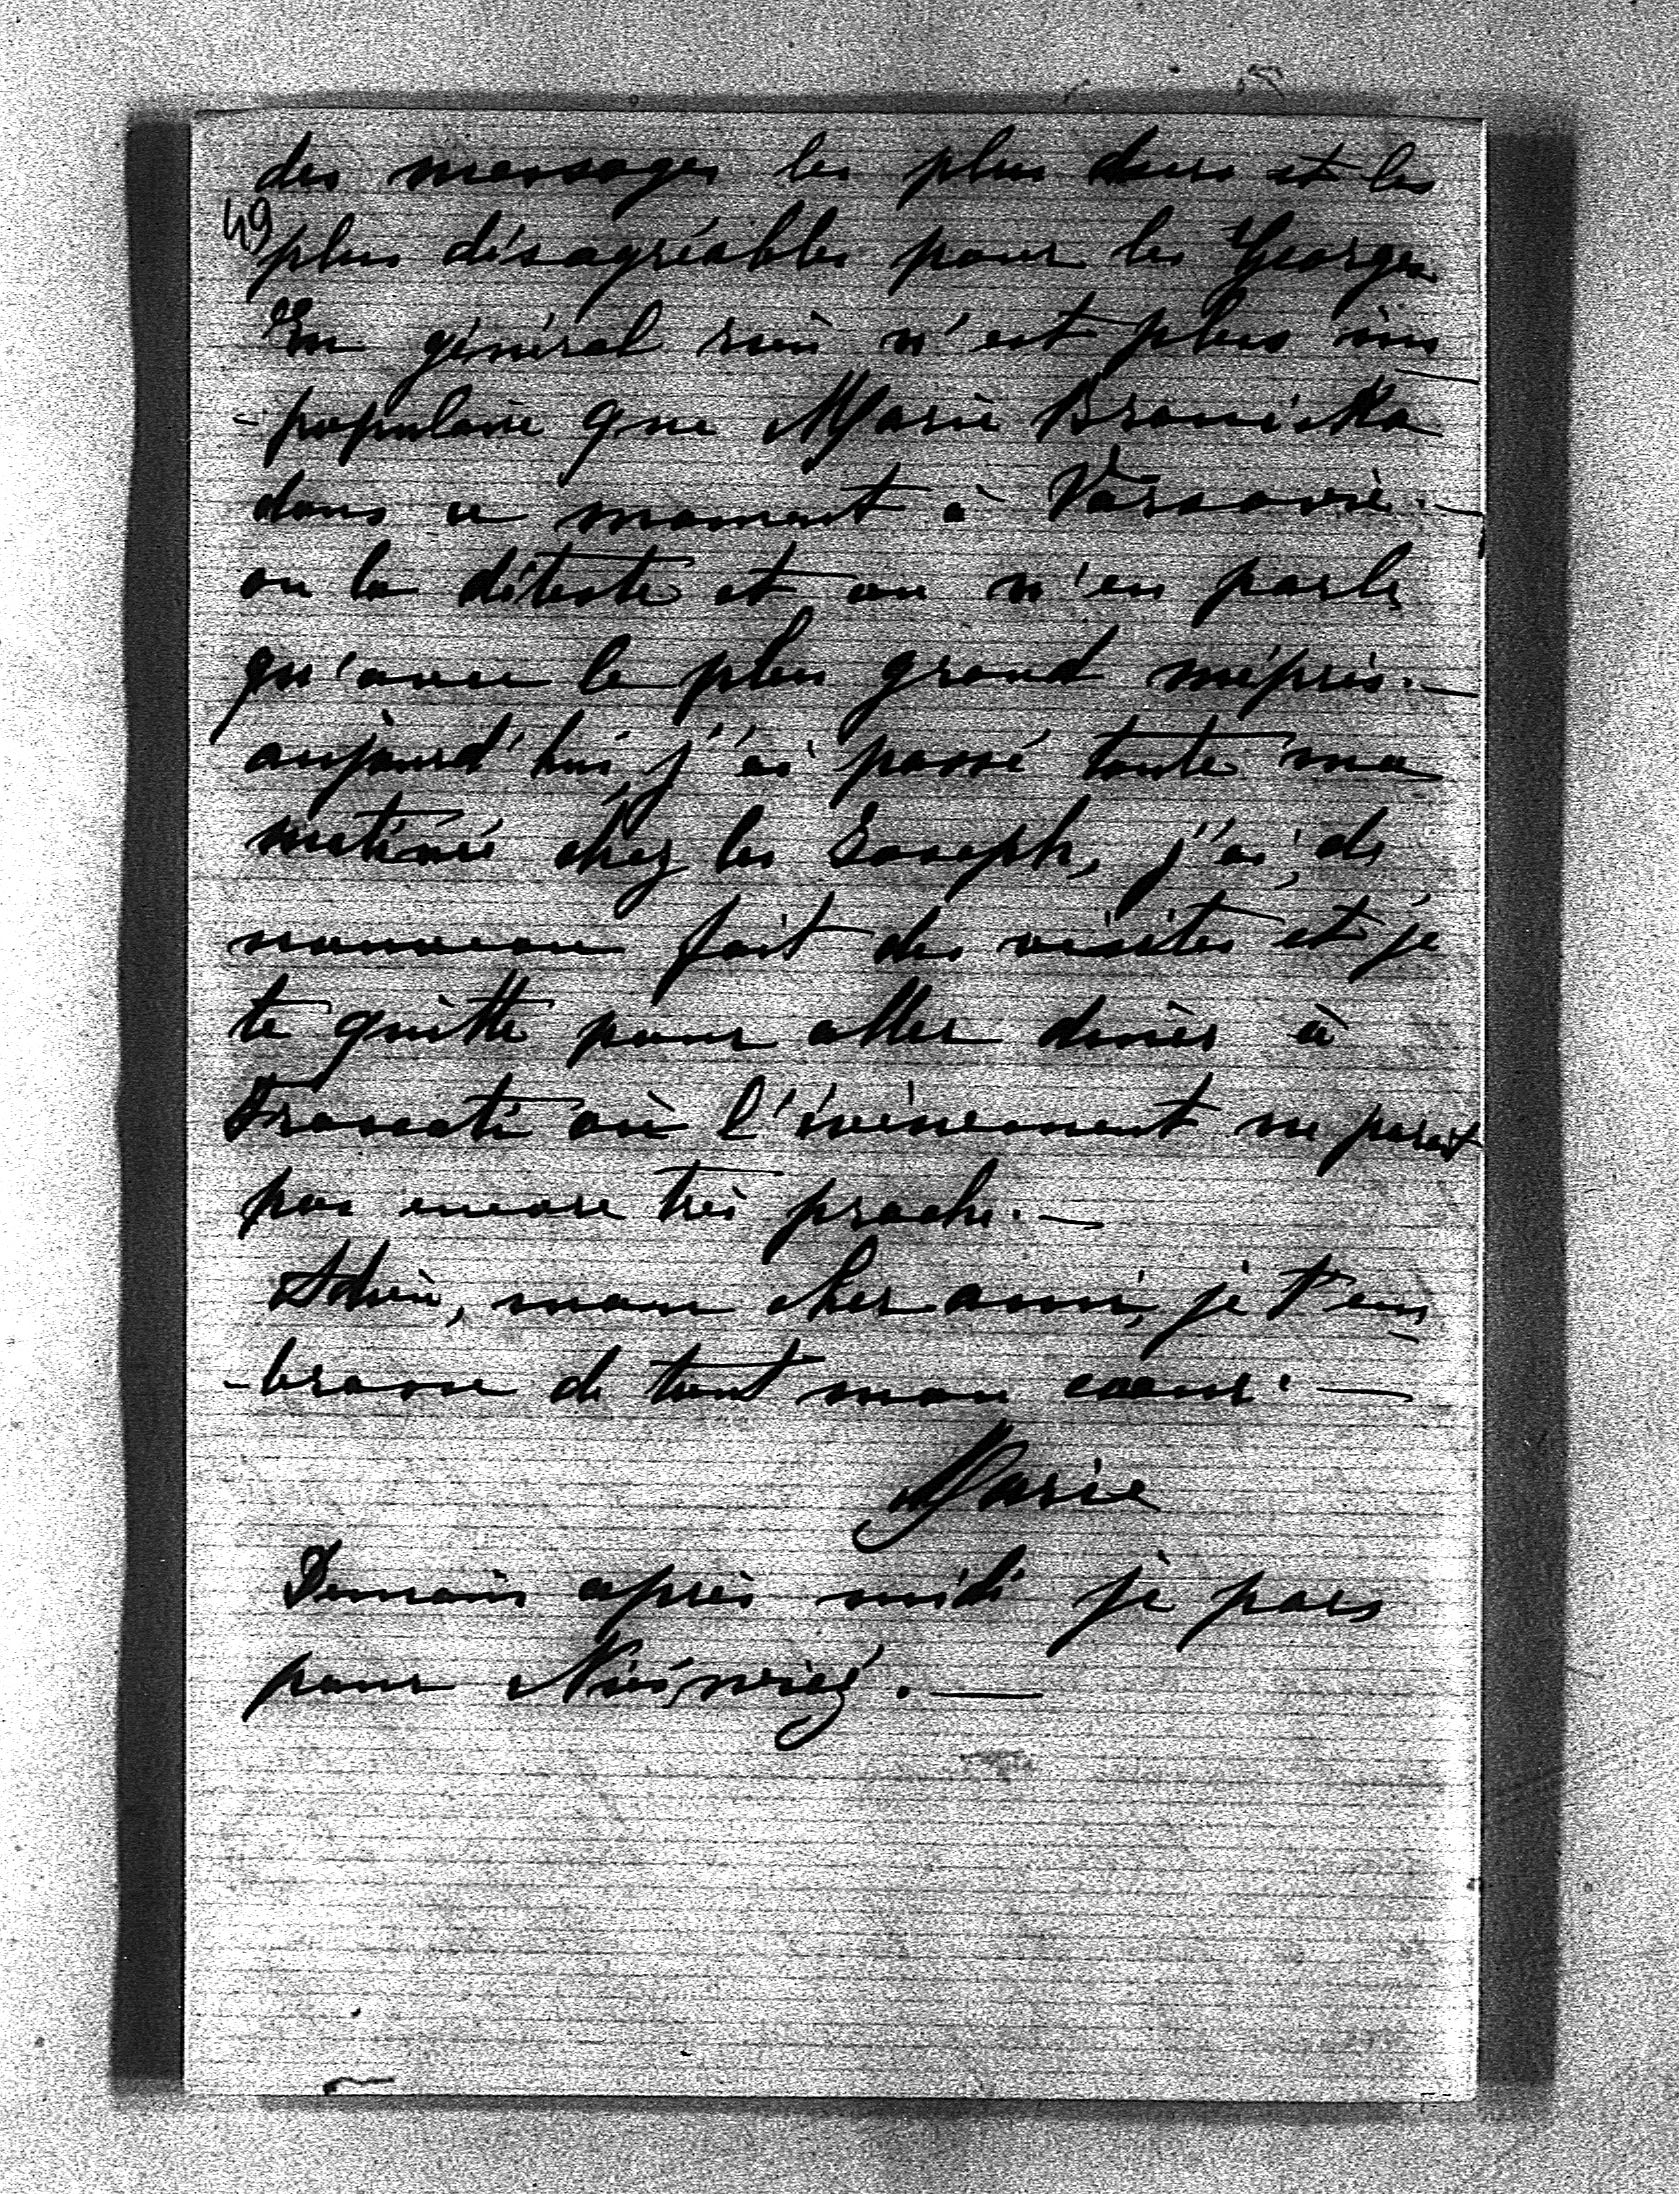 des messages les plus durs et les
49
plus désagréables pour les Georges
En général rien n'est plus im
-populaire que Marie Branicka
dans ce moment à Varsovie. —
on la déteste et on n'en parle
qu'avec le plus grand mépris. —
aujourd'hui j'ai passé toute ma
matinée chez les Joseph, j'ai de
nouveau fait des visites et je
te quitte pour aller diner à
Frascati où l'événement ne parait
pas encore très proche. —
Adieu, mon cher ami, je t'em
-brasse de tout mon coeur. —
Marie
Demain après midi je pars
pour Nieśwież. —